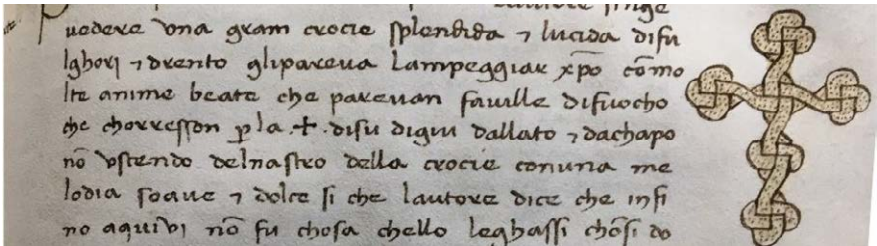 uedere vna gram crocie splendida ⁊ lucida difu
lghorj ⁊ drento glipareua lampeggiar xp̄o cōmo
lte anime beate che pareuan fauille difuocho
che chorresson ꝑla ✝. disu digiu dallato ⁊ dachapo
nō vscendo delnastro della crocie conuna me
lodia soaue ⁊ dolce si che lautore dice che infi
no aquiui nō fu chosa chello leghassi chōsi do